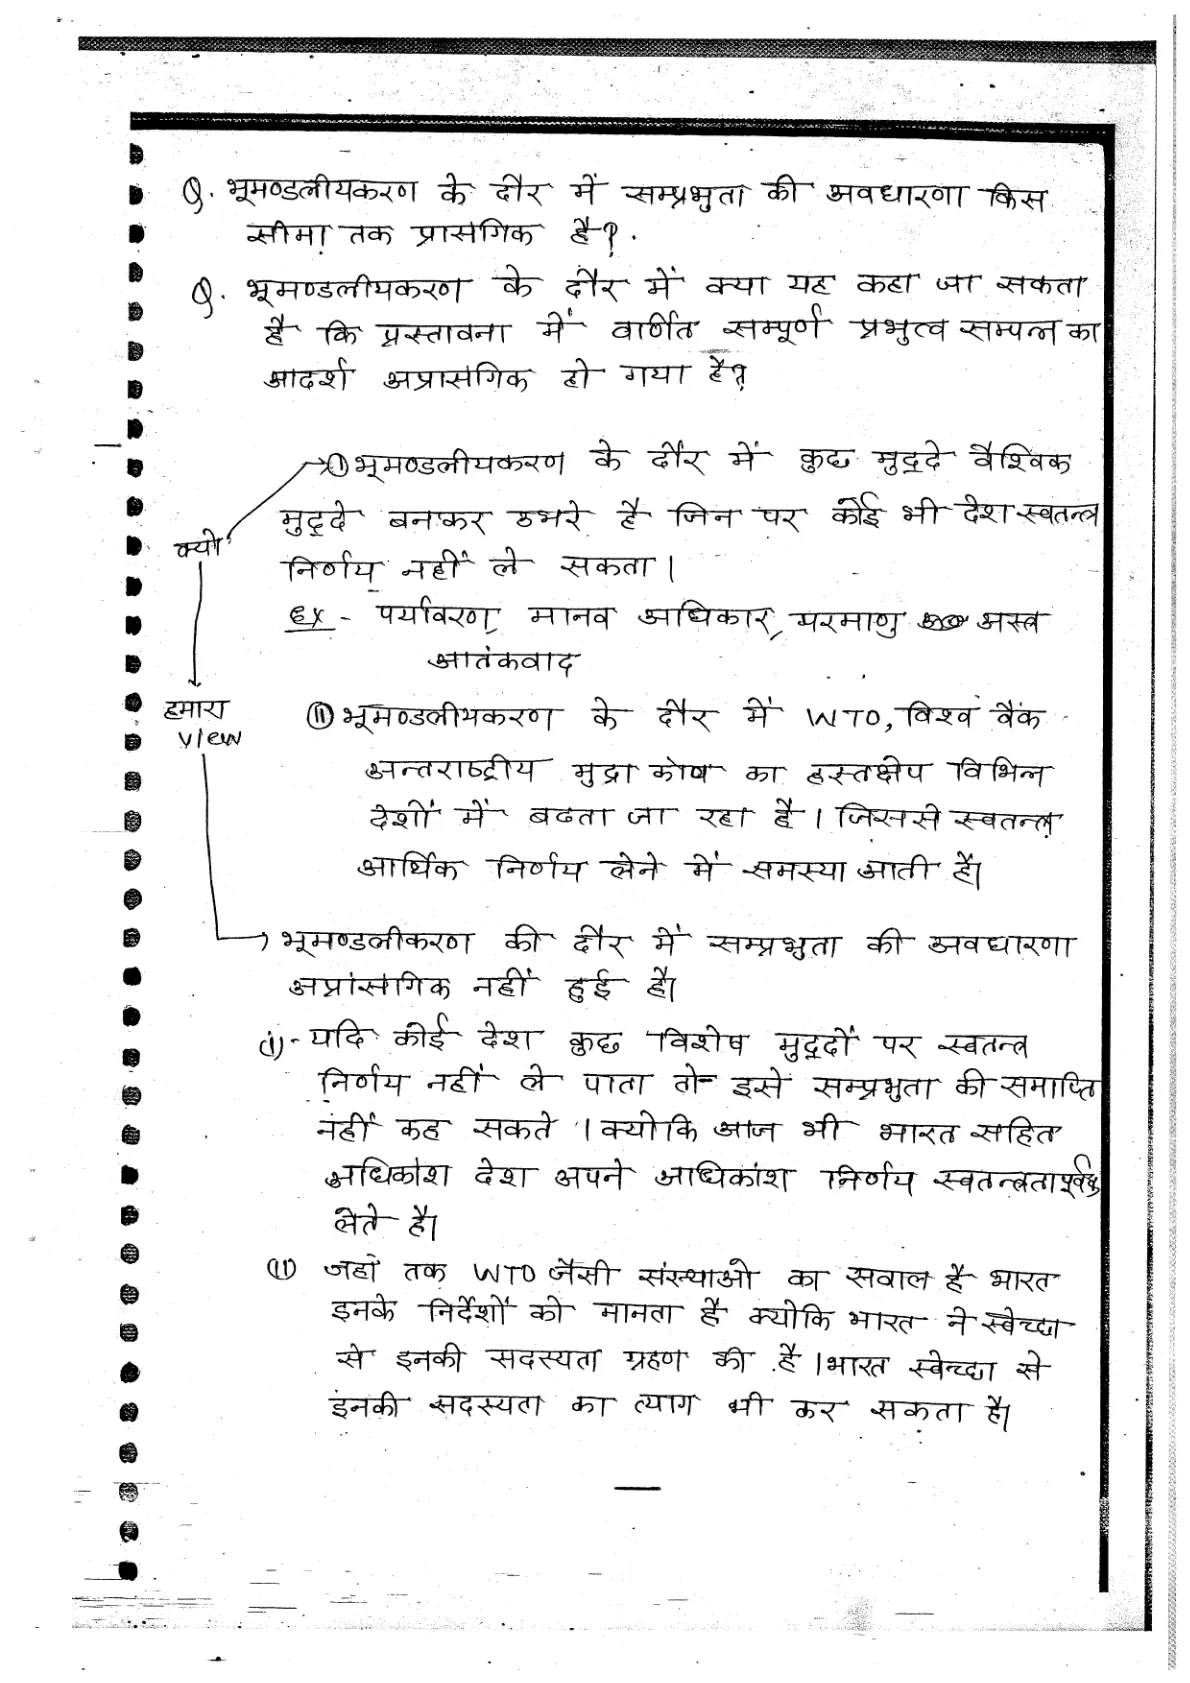 Q. भूमण्डलीयकरण के दौर में सम्प्रभुता की अवधारणा किस
सीमा तक प्रासंगिक है?.
Q. भूमण्डलीयकरण के दौर में क्या यह कहा जा सकता
है कि प्रस्तावना में वर्णित सम्पूर्ण प्रभुत्व सम्पन्न का
आदर्श अप्रासंगिक हो गया है?
क्यो
→① भूमण्डलीयकरण के दौर में कुछ मुद्दे वैश्विक
मुद्दे बनकर उभरे है जिन पर कोई भी देश स्वतन्त्र
निर्णय नहीं ले सकता।
ex - पर्यावरण, मानव अधिकार, परमाणु अस्त्र
आतंकवाद
हमारा
view
(ii) भूमण्डलीयकरण के दौर में WTO, विश्व बैंक
अन्तराष्ट्रीय मुद्रा कोष का हस्तक्षेप विभिन्न
देशों में बढता जा रहा है। जिससे स्वतन्त्र
आर्थिक निर्णय लेने में समस्या आती है।
→ भूमण्डलीकरण की दौर में सम्प्रभुता की अवधारणा
अप्रांसगिक नहीं हुई है।
(i)- यदि कोई देश कुछ विशेष मुद्दों पर स्वतन्त्र
निर्णय नहीं ले पाता तो इसे सम्प्रभुता की समाप्ति
नहीं कह सकते। क्योकि आज भी भारत सहित
अधिकांश देश अपने अधिकांश निर्णय स्वतन्त्रतापूर्वक
लेते है।
(ii) जहां तक WTO जैसी संस्थाओ का सवाल है भारत
इनके निर्देशों को मानता है क्योकि भारत ने स्वेच्छा
से इनकी सदस्यता ग्रहण की है। भारत स्वेच्छा से
इनकी सदस्यता का त्याग भी कर सकता है।